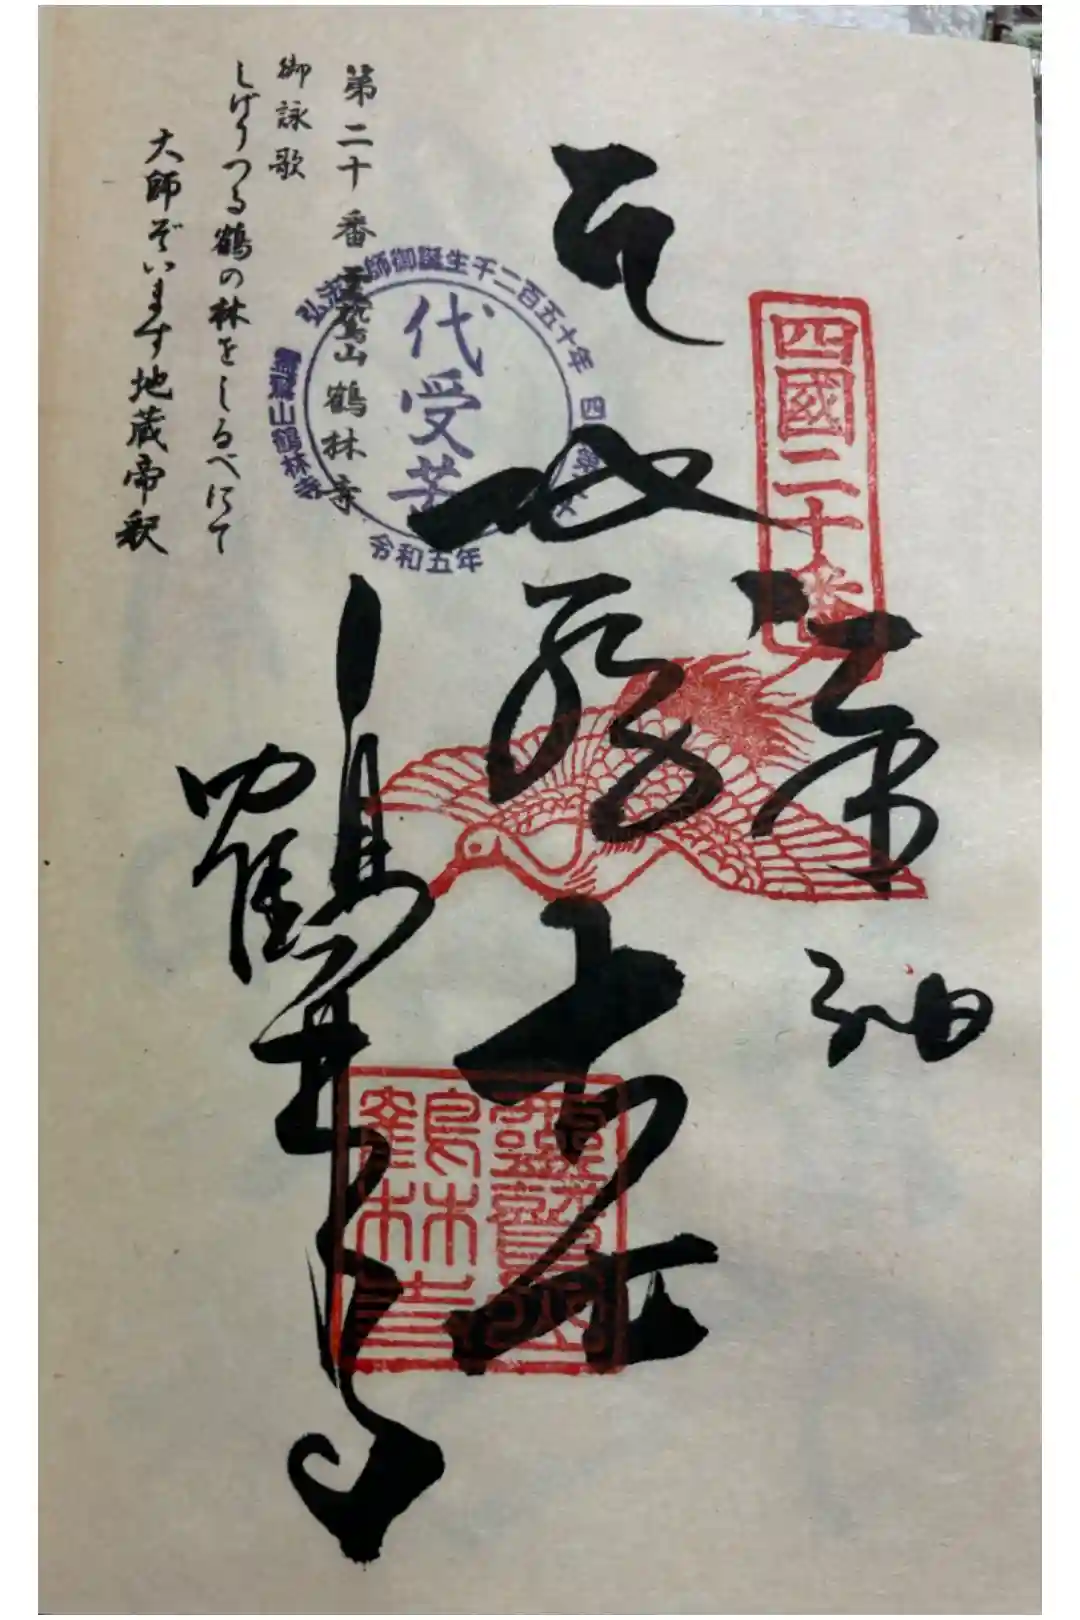 四國二十番
奉納
地蔵大士
鶴林寺
霊鷲山
鶴林寺
弘法大師御誕生千二百五十年
代受苦
霊鷲山鶴林寺
令和五年
第二十番 霊鷲山 鶴林寺
御詠歌
しげりつる鶴の林をしるべにて
大師ぞいます地蔵帝釈